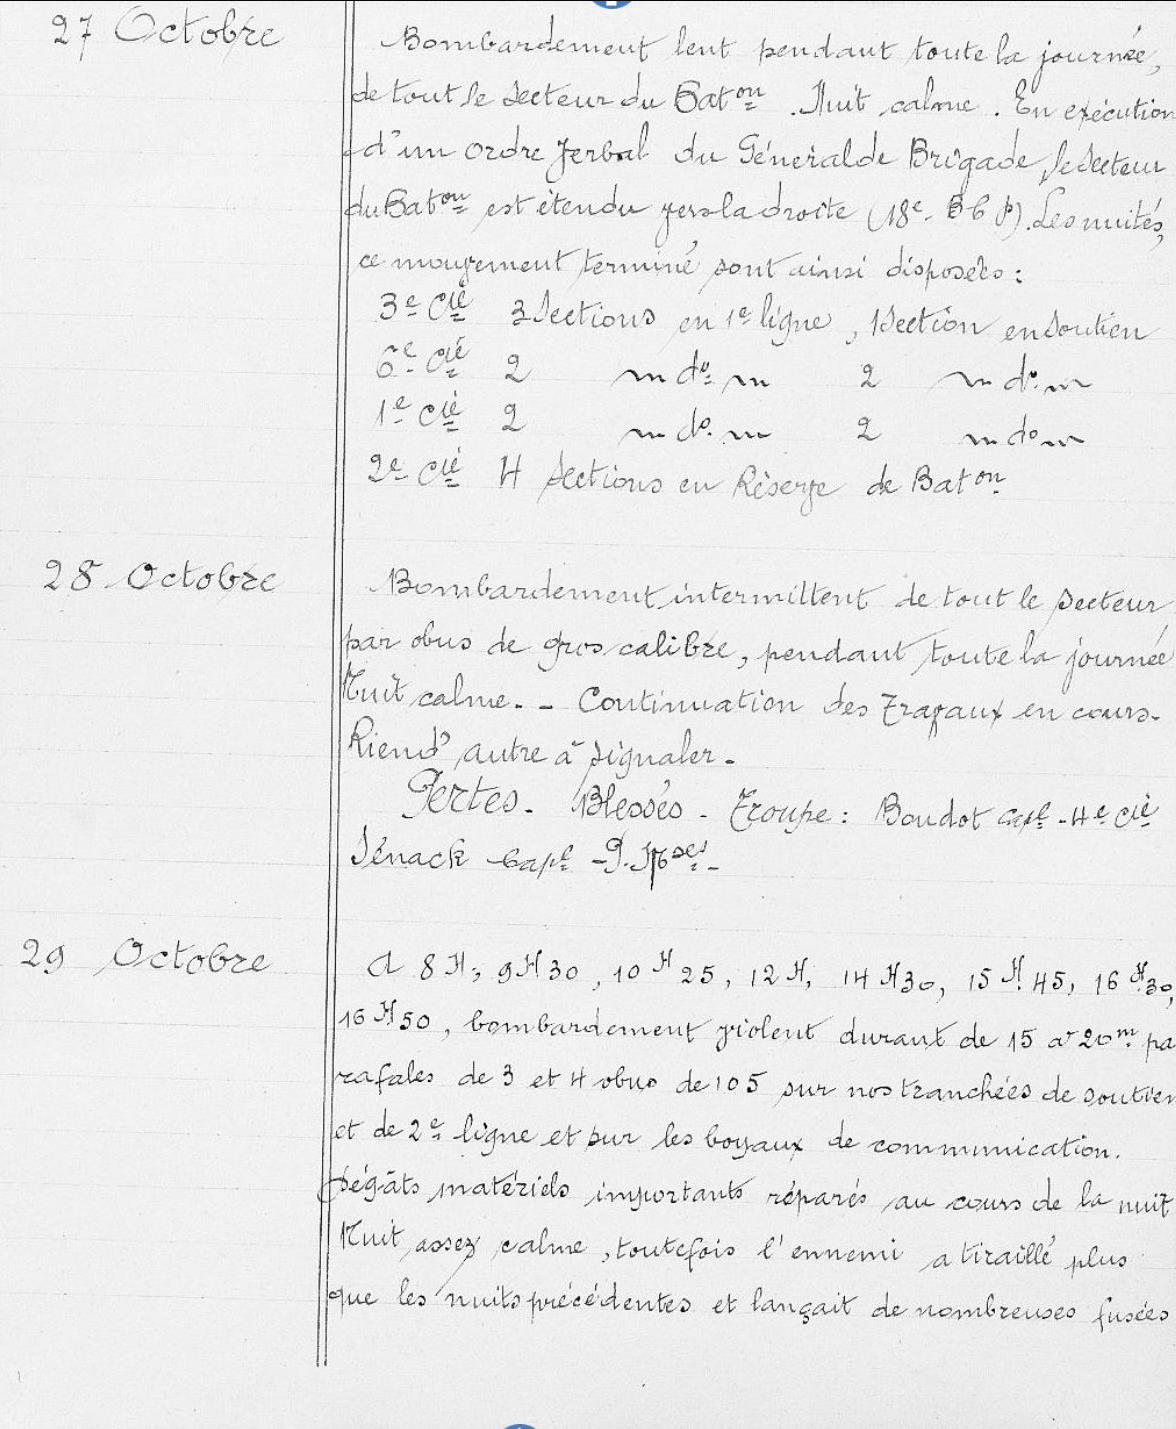 27 Octobre
Bombardement lent pendant toute la journée,
de tout le secteur du Baton. Nuit calme. En exécution
d'un ordre verbal du Général de Brigade, le secteur
du Baton est étendu vers la droite (18e. B C P). Les unités,
ce mouvement terminé sont ainsi disposées :
3e Cie 3 Sections en 1e ligne, 1 Section en soutien
6e Cie 2 — do — 2 — do —
1e Cie 2 — do — 2 — do —
2e Cie 4 Sections en Réserve de Baton
28 Octobre
Bombardement intermittent de tout le secteur
par obus de gros calibre, pendant toute la journée
Nuit calme. - Continuation des travaux en cours.
Rien d'autre à signaler.
Pertes. Blessés. Troupe : Boudot capl - 4e Cie
Sénack Capl
29 Octobre
A 8 H, 9 H 30, 10 H 25, 12 H, 14 H 30, 15 H. 45, 16 H. 30,
16 H 50, bombardement violent durant de 15 à 20m pa
rafales de 3 et 4 obus de 105 sur nos tranchées de soutien
et de 2e ligne et sur les boyaux de communication.
Dégâts matériels importants réparés au cours de la nuit
Nuit assez calme, toutefois l'ennemi a tiraillé plus
que les nuits précédentes et lançait de nombreuses fusées